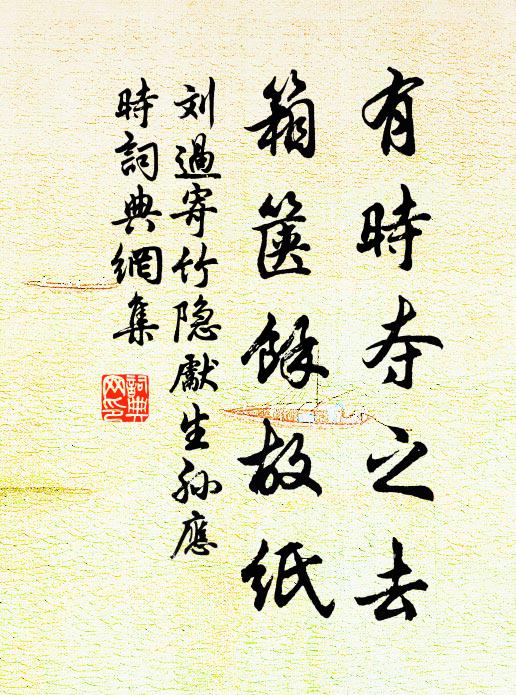 有時夺之去
箱篋餘故紙
刘過寄竹隐獻生孙應
時詞典網集
詞典
网印